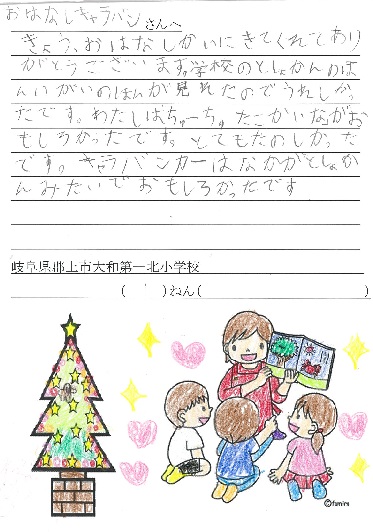 おはなしキャラバンさんへ
きょう、おはなしかいにきてくれてあり
がとうございます。学校のとしょかんのほ
んいがいのほんが見れたのでうれしかっ
たです。わたしはちゅーちゅたこかいながお
もしろかったです。とてもたのしかった
です。キャラバンカーはなかがとしょか
んみたいでおもしろかったです
岐阜県郡上市大和第一北小学校
( )ねん( )
©fumira